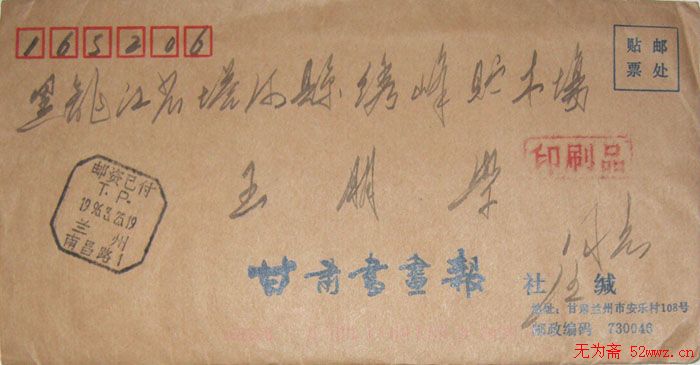 165206
贴邮
票处
黑龙江省塔河县绣峰贮木场
印刷品
邮资已付
T.P.
1996.3.25.19
兰州
南昌路1
王明学
同志
甘肃书画报 社 缄
地址：甘肃兰州市安乐村108号
邮政编码 730046
无为斋 52wwz.cn